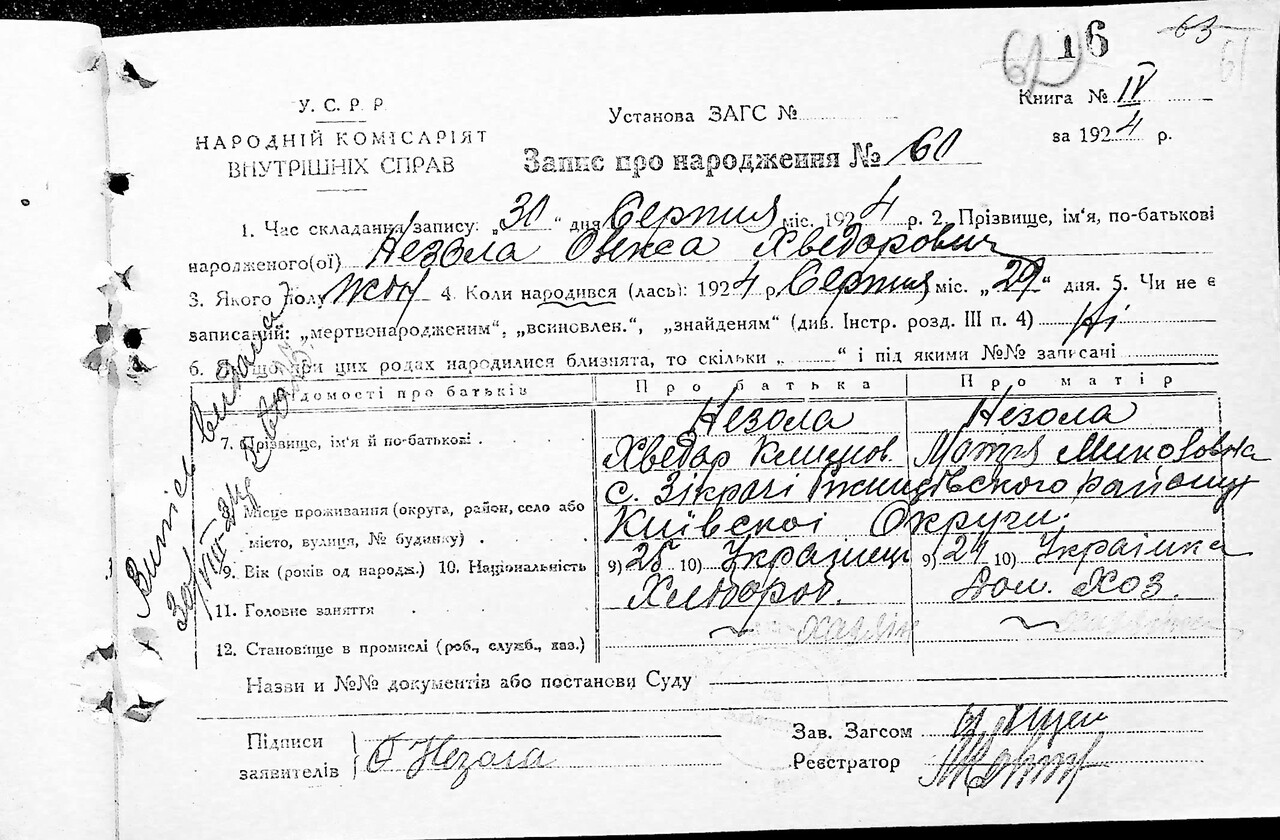 62 16 63 61
У. С. Р. Р.
НАРОДНІЙ КОМІСАРІЯТ
ВНУТРІШНІХ СПРАВ
Установа ЗАГС №
Книга № IV
за 1924 р.
Запис про народження № 60
1. Час складання запису: „30" дня Серпня міс. 1924 р. 2. Прізвище, ім'я, по-батькові
народженого(ої) Незола Олекса Хведорович
3. Якого полу 4. Коли народився (лась): 1924 р. Серпня міс. „29" дня. 5. Чи не є
записаний: „мертвонародженим", „всиновлен.", „знайденям" (див. Інстр. розд. III п. 4) Ні
6. Якщо при цих родах народилися близнята, то скільки „ " і під якими №№ записані
Відомості про батьків Про батька Про матір
7. Прізвище, ім'я й по-батькові Незола Незола
Хведар Климов. Мотря Миколовна
8. Місце проживання (округа, район, село або с. Зікрачі Ржищівского району
місто, вулиця, № будинку) Київскоі Округи.
9. Вік (років од народж.) 10. Національність 9) 25 10) Украінець 9) 24 10) Украінка
11. Головне заняття Хлібороб. Дом. Хоз.
12. Становище в промислі (роб., служб., хаз.) хазяін
Назви и №№ документів або постанови Суду
Підписи
заявителів Незола
Зав. Загсом
Реєстратор
Випись видана
30/VIII-24